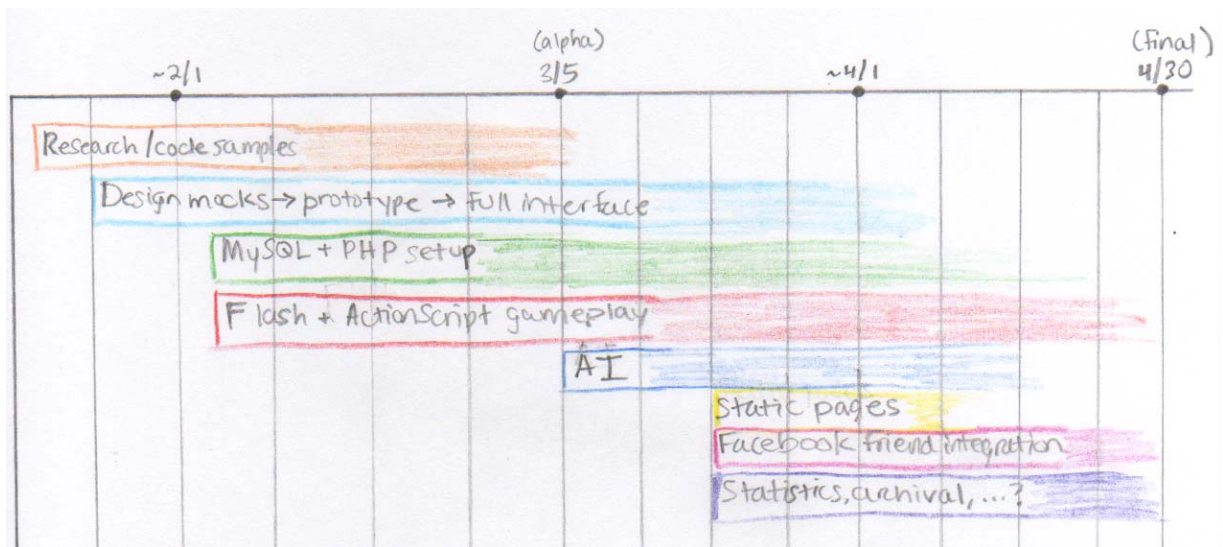 (alpha) (final)
~2/1 3/5 ~4/1 4/30
Research/code samples
Design mocks → prototype → full interface
MySQL + PHP setup
Flash + ActionScript gameplay
AI
Static pages
Facebook friend integration
Statistics, archival, ...?